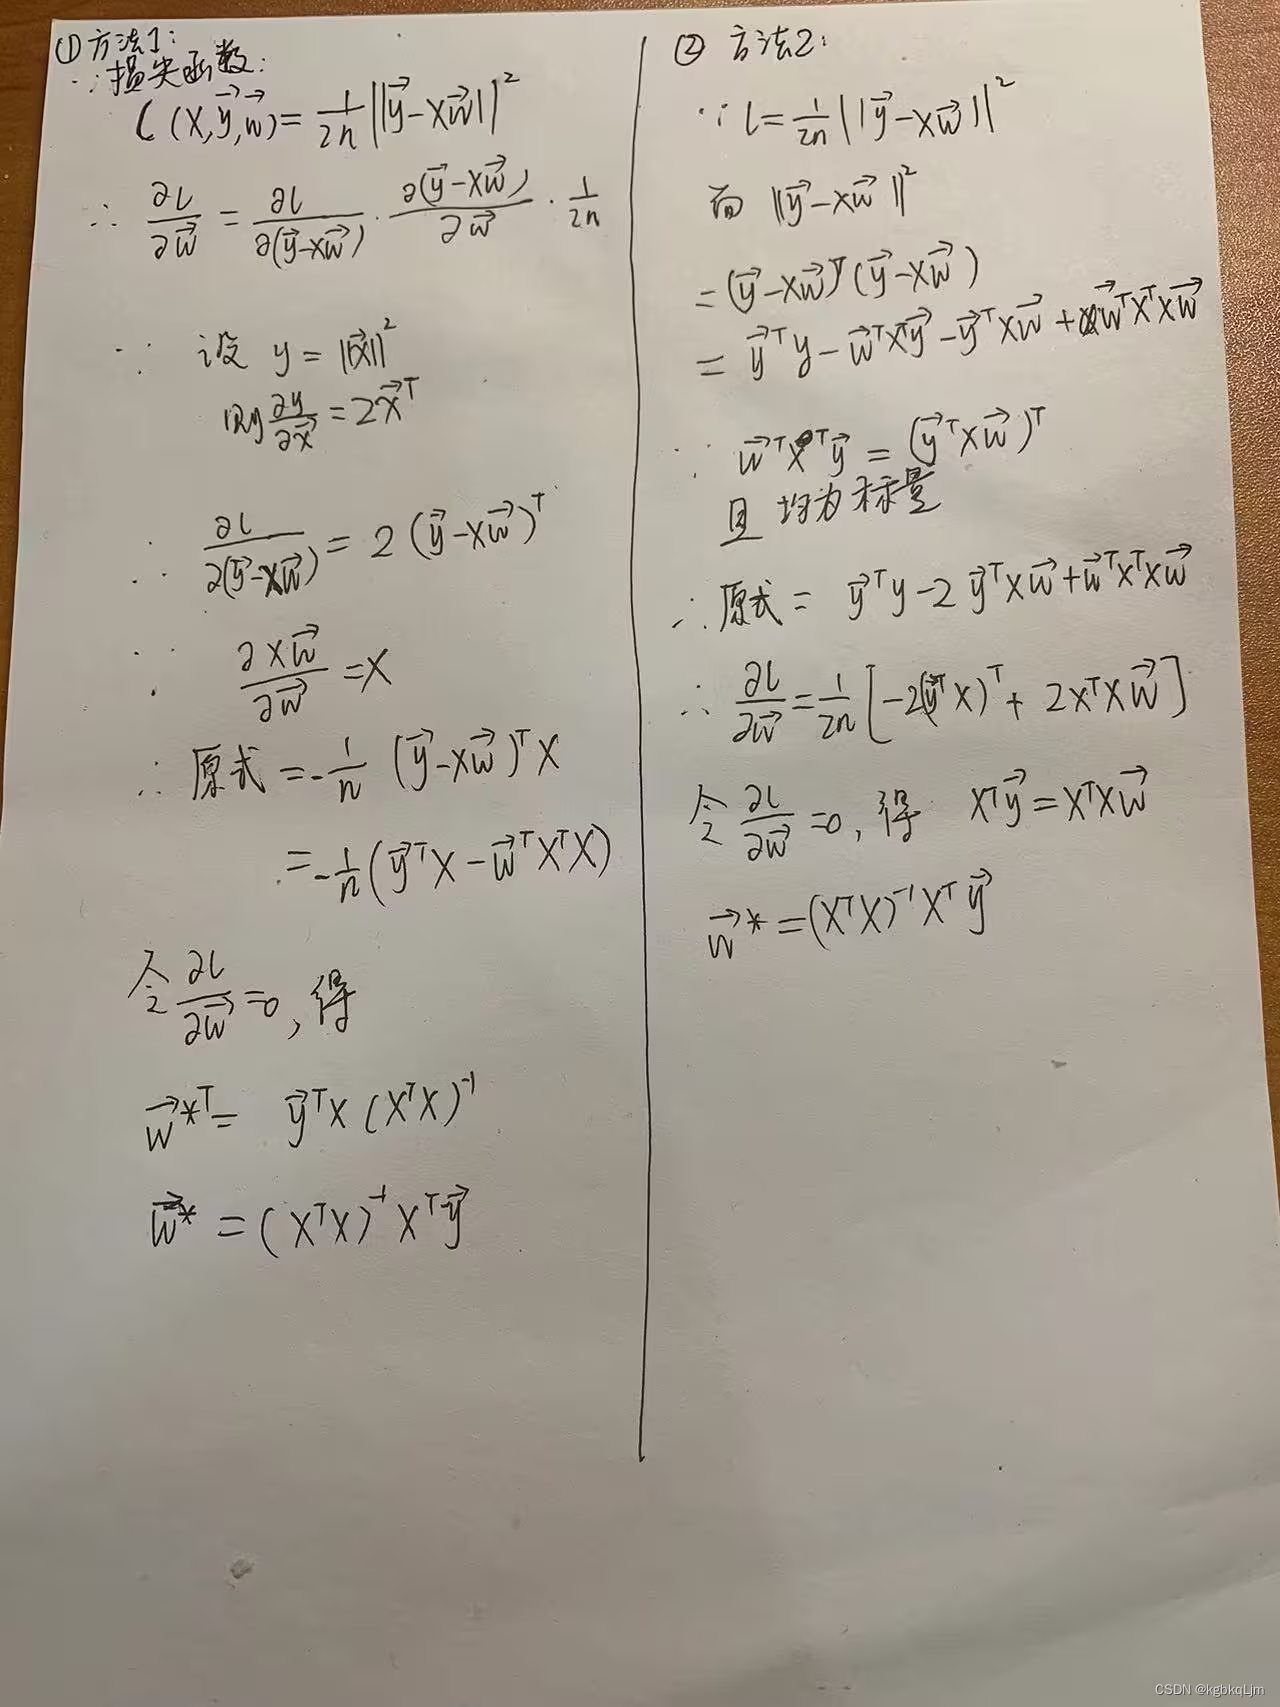 ① 方法1:
∵ 损失函数:
l(X,y⃗,w⃗)=1/2n ||y⃗-Xw⃗||²
∴ ∂l/∂w⃗ = ∂l/∂(y⃗-Xw⃗) · ∂(y⃗-Xw⃗)/∂w⃗ · 1/2n
∵ 设 y = ||x⃗||²
则 ∂y/∂x⃗ = 2x⃗ᵀ
∴ ∂l/∂(y⃗-Xw⃗) = 2 (y⃗-Xw⃗)ᵀ
∵ ∂Xw⃗/∂w⃗ = X
∴ 原式 = -1/n (y⃗-Xw⃗)ᵀX
= -1/n (y⃗ᵀX - w⃗ᵀXᵀX)
令 ∂l/∂w⃗ = 0, 得
w⃗*ᵀ = y⃗ᵀX (XᵀX)⁻¹
w⃗* = (XᵀX)⁻¹Xᵀy⃗
② 方法2:
∵ l = 1/2n ||y⃗-Xw⃗||²
而 ||y⃗-Xw⃗||²
= (y⃗-Xw⃗)ᵀ(y⃗-Xw⃗)
= y⃗ᵀy - w⃗ᵀXᵀy⃗ - y⃗ᵀXw⃗ + w⃗ᵀXᵀXw⃗
∵ w⃗ᵀXᵀy⃗ = (y⃗ᵀXw⃗)ᵀ
且 均为标量
∴ 原式 = y⃗ᵀy - 2y⃗ᵀXw⃗ + w⃗ᵀXᵀXw⃗
∴ ∂l/∂w⃗ = 1/2n [-2(y⃗ᵀX)ᵀ + 2XᵀXw⃗]
令 ∂l/∂w⃗ = 0, 得 Xᵀy⃗ = XᵀXw⃗
w⃗* = (XᵀX)⁻¹Xᵀy⃗
CSDN @kgbkqLjm